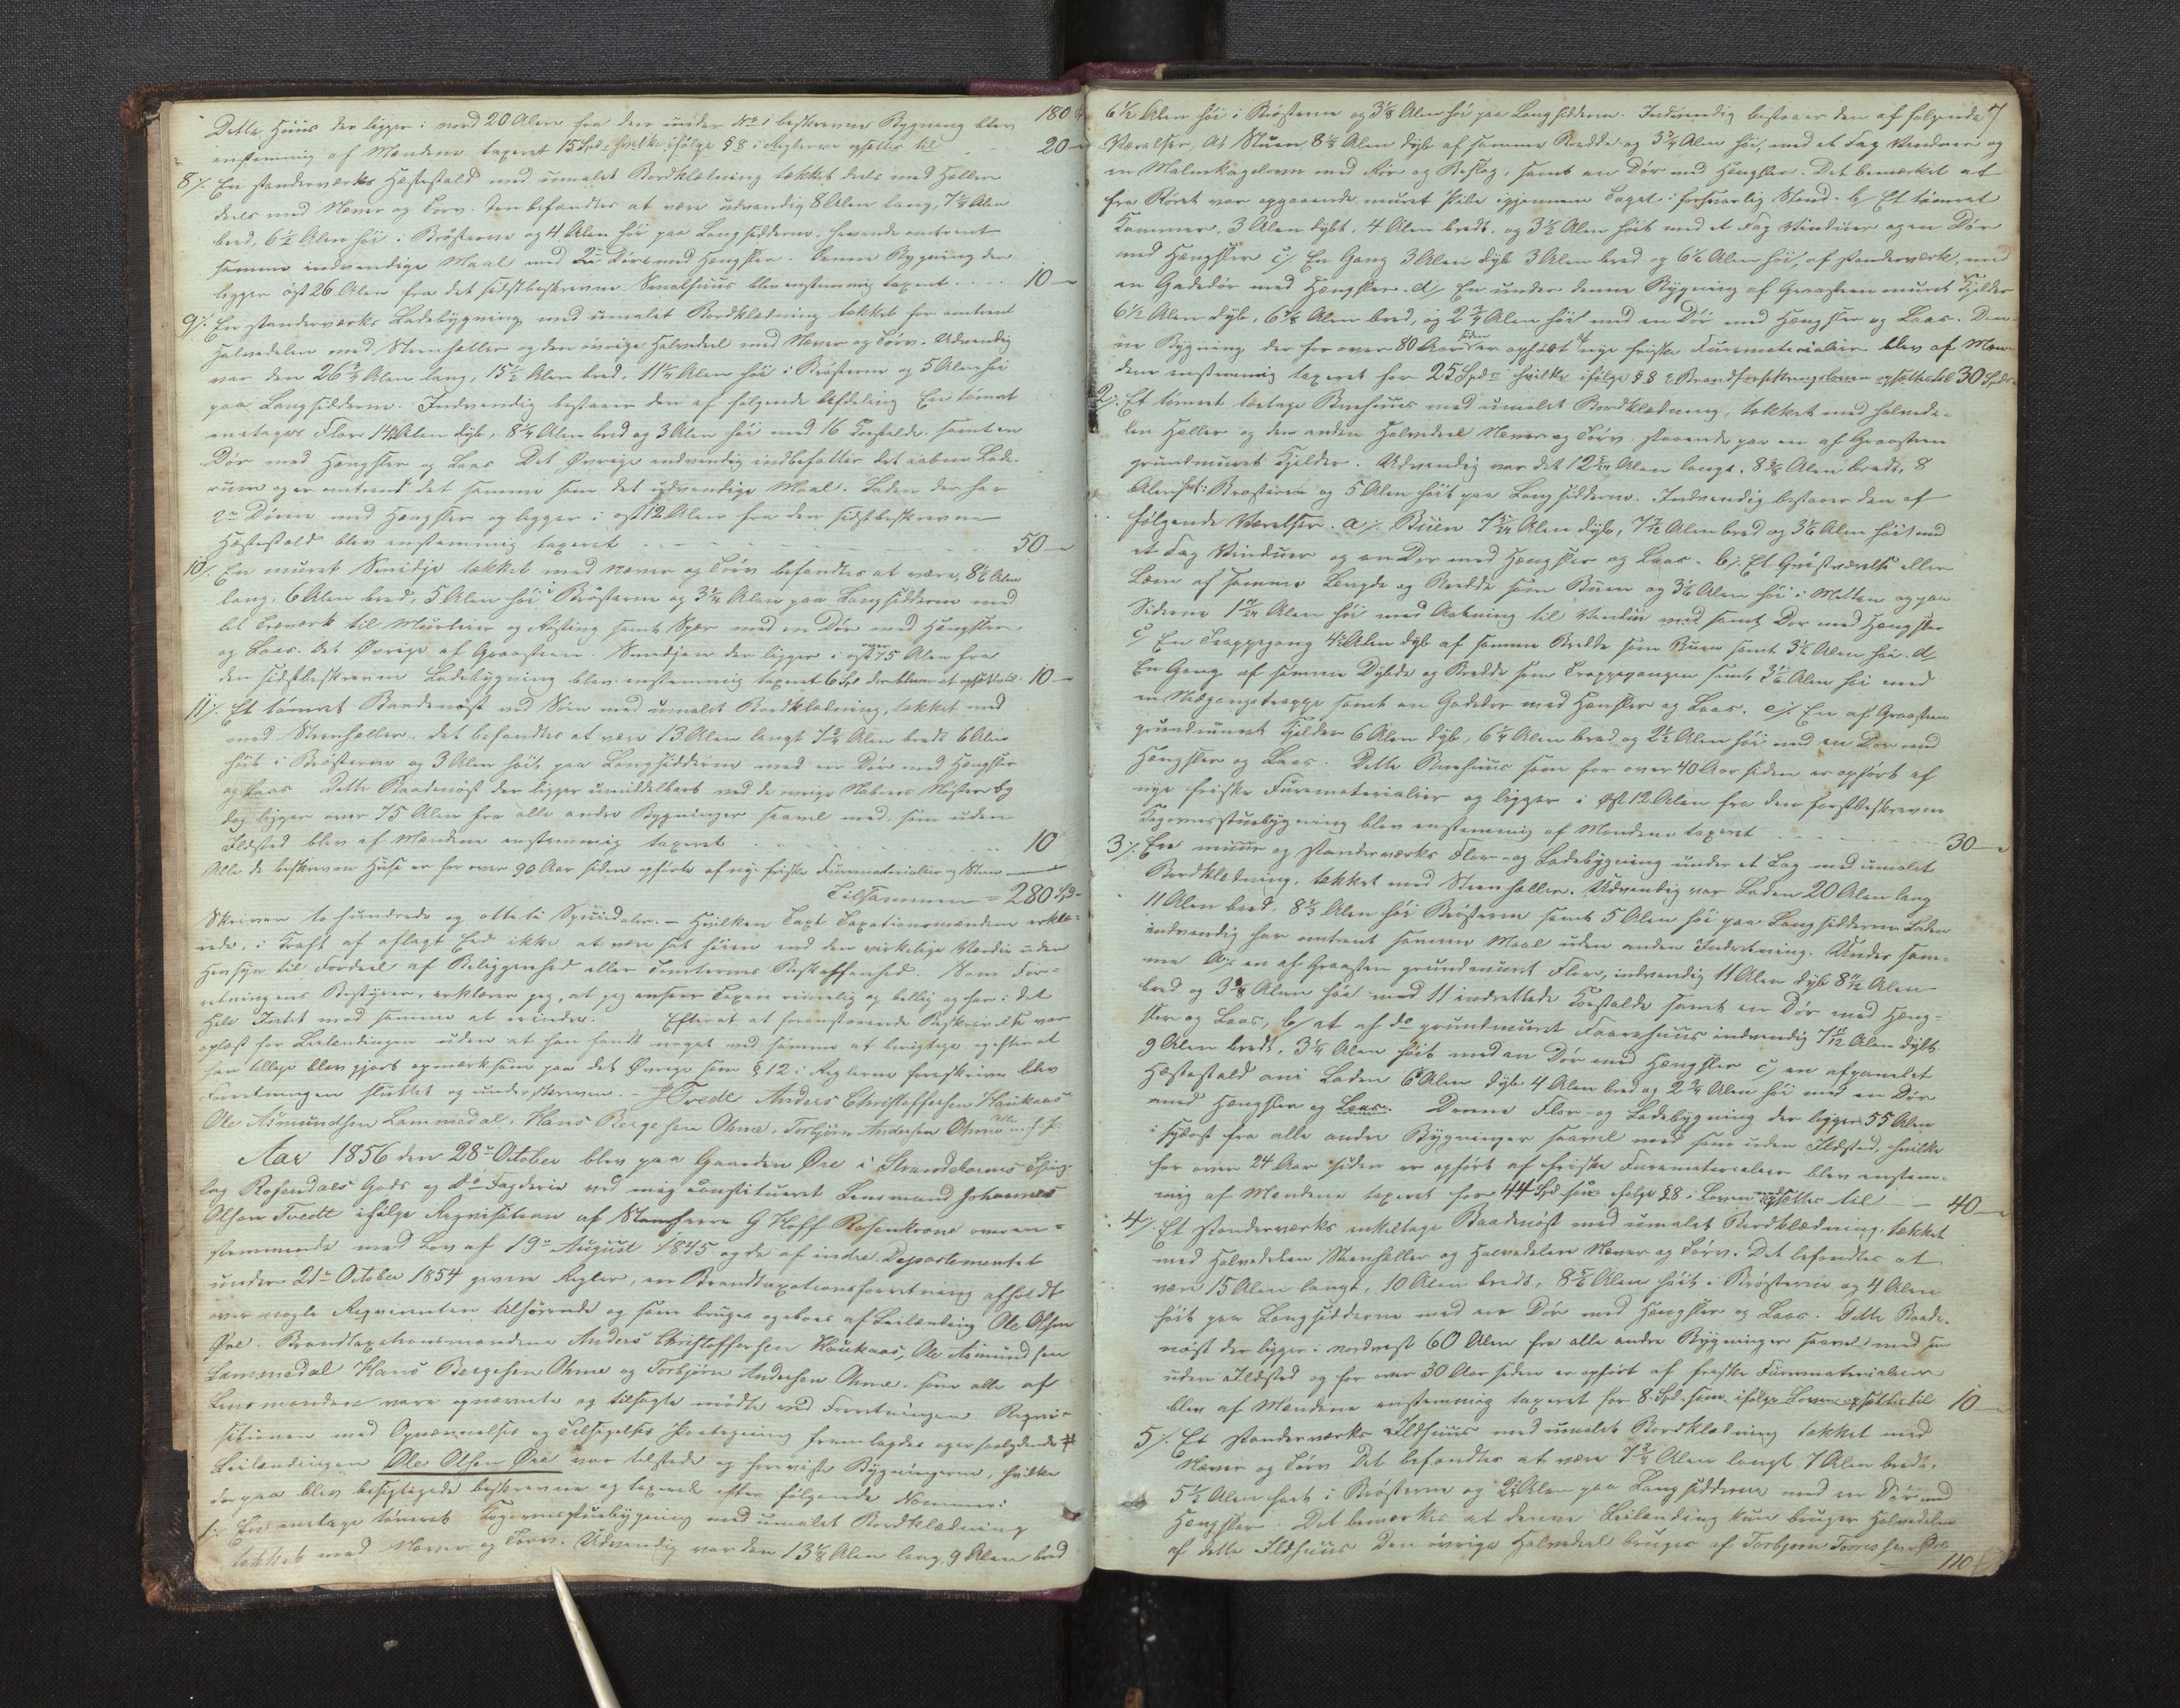 180
Dette Huus der ligger i nord 20 Alen fra den under No 1 beskrevne Bygning blev
enstemmig af Mændene taxeret 15 Spd. hvilke ifølge § 8 i Reglerne opsættes til 20 -
8/. En standerværks Hestestald med umalet Bordklædning tækket deels med Heller
deels med Næver og Torv. Den befandtes at være udvendig 8 Alen lang, 7 1/8 Alen
bred, 6 1/2 Alen høi i Brøsterne og 4 Alen høi paa Langsidderne, havende omtrent
samme indvendige Maal med 2de Døre med Hængsler. Denne Bygning der
ligger øst 26 Alen fra det sidstbeskrevne Smalhuus blev enstemmig taxeret .... 10 -
9/. En standerværks Ladebygning med umalet Bordklædning tækket for omtrent
Halvedelen med Steenheller og den øvrige Halvedeel med Næver og Torv. Udvendig
var den 26 3/4 Alen lang, 15 1/2 Alen bred, 11 1/4 Alen høi i Brøsterne og 5 Alen høi
paa Langsidderne. Indvendig bestaaer den af følgende Afdeling En tømret
enetages Flor 14 Alen dyb, 8 1/4 Alen bred og 3 Alen høi med 16 Koestalde samt en
Dør med Hængsler og Laas Det Øvrige indvendig indbefatter det aabne Lade-
rum og er omtrent det samme som det udvendige Maal. Laden der har
2de Dørre med Hængsler og ligger i øst 12 Alen fra den sidstbeskrevne
Hestestald blev enstemmig taxeret 50 -
10/. En muret Smidje tækket med Næver og Torv befandtes at være, 8 1/2 Alen
lang, 6 Alen bred, 5 Alen høi i Brøsterne og 3 1/4 Alen paa Langsidderne med
lit Træværk til og samt Spær med en Dør med Hængsler
og Laas. Det Øvrige af Graasteen. Smedjen der ligger i øst over 75 Alen fra
den sidstbeskrevne Ladebygning blev enstemmig taxeret 6 Spd. der bliver at opsætte til 10 -
11/. Et tømret Baadenøst ved Søen med umalet Bordklædning, tækket med
med Steenheller. Det befandtes at være 13 Alen langt 7 3/4 Alen bredt 6 Alen
høit i Brøsterne og 3 Alen høit paa Langsidderne med en Dør med Hængsler
og Laas Dette Baadenøst der ligger umiddelbart ved de øvrige Naboers Nøster og
dog ligger over 75 Alen fra alle andre Bygninger saavel med som uden
Ildsted blev af Mændene enstemmig taxeret 10
Alle de beskrevne Huse er for over 90 Aar siden opførte af nye friske Furematerialier og Steen
Tilsammen = 280 Spd.
Skriver to hundrede og otteti Speciedaler. - Hvilken Taxt Taxationsmændene erklæ-
rede, i Kraft af aflagt Eed ikke at være sat høiere end den virkelige Værdie uden
Hensyn til Fordeel af Beliggenhed eller Tomternes Beskaffenhed. Som For-
retningens Bestyrer, erklærer jeg, at jeg anseer Taxten rimelig og billig og har i det
Hele Intet mod samme at erindre. Efterat at foranstaaende Beskrivelse var
oplæst for Leilændingen uden at han fandt noget ved samme at berigtige og efterat
han tillige blev gjort opmærksom paa det Øvrige som § 12 i Reglerne foreskriver blev
Forretningen sluttet og underskreven. - J Tvedt Anders Christoffersen Haukaas
Ole Asmundsen Lammedal, Hans Bergesen Ohme, Torbjørn Andersen Ohme alle m. f. P:
Aar 1856 den 28de October blev paa Gaarden Øre i Strandebarms Thing-
lag Rosendals Gods og do Fogderie ved mig constitueret Lensmand Johannes
Olsen Tvedt ifølge Reqvisition af Stamherre G Hoff Rosenkrone overen-
stemmende med Lov af 19de August 1845 og de af indre Departementet
under 21de October 1854 givne Regler, en Brandtaxationsforretning afholdt
over nogle Reqvirenten tilhørende og som bruges og eboes af Leilænding Ole Olsen
Øre. Brandtaxationsmændene Anders Christoffersen Haukaas, Ole Asmundsen
Lammedal Hans Bergesen Ohme og Torbjørn Andersen Ohme, som alle af
Lensmanden vare opnævnte og tilsagte mødte ved Forretningen Reqvi-
sitionen med Opnævnelses og Tilsigelses Paategning fremlagdes og er saalydende #
Leilændingen Ole Olsen Øre var tilstede og foreviste Bygningerne, hvilke
derpaa blev besigtigede beskrevne og taxerede efter følgende Nommer:
1/. En enetage tømret Røgovnsstuebygning med umalet Bordklædning
tækket med Næver og Torv. Udvendig var den 13 1/8 Alen lang, 9 Alen bred
7
6 1/2 Alen høi i Brøsterne og 3 1/8 Alen høi paa Langsidderne. Indvendig bestaaer den af følgende
Værelser, a/ Stuen, 8 1/4 Alen dyb af samme Bredde og 3 3/4 Alen høi, med et Fag Vinduer og
en Malmkagelovn med Rør og Beslag, samt en Dør med Hængsler. Det bemærket at
fra Røret var opgaaende muret Pibe igjennem Taget i forsvarlig Stand. b/ Et tømret
Kammer, 3 Alen dybt, 4 Alen bredt, og 3 1/2 Alen høit med et Fag Vinduer og en Dør
med Hængsler c/ En Gang 3 Alen dyb 3 Alen bred og 6 1/2 Alen høi, af standerværk, med
en Gadedør med Hængsler. d/ En under denne Bygning af Graasteen muret Kjelder
6 1/2 Alen dyb, 6 1/8 Alen bred, og 2 3/4 Alen høi med en Dør med Hængsler og Laas. Den-
ne Bygning der for over 80 Aar siden er opført af nye friske Furematerialier blev af Mæn-
dene enstemmig taxeret for 25 Spd. hvilke ifølge § 8 i Brandforsikringsloven opsættes til 30 Spd.
2/. Et tømret toetage Buehuus med umalet Bordklædning, tækket med Halvede-
len Heller og den anden Halvedeel Næver og Torv, staaende paa en af Graasteen
grundmuret Kjelder. Udvendig var det 12 Alen langt, 8 3/8 Alen bredt, 8
Alen høi i Brøsterne og 5 Alen høit paa Langsidderne. Indvendig bestaaer den af
følgende Værelser. a/. Buen 7 Alen dyb, 7 7/12 Alen bred og 3 1/6 Alen høit med
et Fag Vinduer og en Dør med Hængsler og Laas. b/. Et eller
Lem af samme Længde og Bredde som Buen og 3 1/6 Alen høi i Mitten og paa
Siderne 1 Alen høi med Aabning til Vindue med samt Dør med Hængsler
c/ En Trappegang 4 Alen dyb af samme Bredde som Buen samt 3 1/2 Alen høi. d/
En Gang af samme Dybde og Bredde som Trappegangen samt 3 1/6 Alen høi med
en samt en Gadedør med Hængsler og Laas. e/. En af Graasteen
grundmuret Kjelder 6 Alen dyb, 6 1/4 Alen bred og 2 1/2 Alen høi med en Dør med
Hængsler og Laas. Dette Buehuus som for over 40 Aar siden er opført af
nye friske Furematerialier og ligger i Øst 12 Alen fra den førstbeskrevne
Røgovnsstuebygning blev enstemmig af Mændene taxeret 30 -
3/. En muur og standerværks Flor- og Ladebygning under et Tag med umalet
Bordklædning, tækket med Steenheller. Udvendig var Laden 20 Alen lang
11 Alen bred, 8 1/3 Alen høi Brøsterne samt 5 Alen høi paa Langsidderne. Laden
indvendig har omtrent samme Maal uden anden Indretning. Under sam-
me a/. en af Graasteen grundmuret Flor, indvendig 11 Alen dyb 8 Alen
bred og 3 Alen høi med 11 indrettede Koestalde samt en Dør med Hæng-
sler og Laas, b/ et af do grundmuret Faarehuus indvendig 7 Alen dybt
9 Alen bredt, 3 1/4 Alen høit med en Dør med Hængsler c/ en afpanelet
Hestestald oni Laden 6 Alen dyb 4 Alen bred og 2 3/4 Alen høi med en Dør
med Hængsler og Laas. Denne Flor- og Ladebygning der ligger 55 Alen
i sydost fra alle andre Bygninger saavel med som uden Ildsted, hvilke
for over 24 Aar siden er opført af friske Furematerialier blev enstem-
mig af Mændene taxeret for 44 Spd. som ifølge § 8 i Loven nedsættes til - 40 -
4/. Et standerværks enketage Baadenøst med umalet Bordklædning, tækket
med Halvedelen Steenheller og Halvedelen Næver og Torv. Det befandtes at
være 15 Alen langt, 10 Alen bredt, 8 5/6 Alen høit i Brøsterne og 4 Alen
høit paa Langsidderne med en Dør med Hængsler og Laas. Dette Baade-
nøst der ligger i nordvest 60 Alen fra alle andre Bygninger saavel med som
uden Ildsted og for over 30 Aar siden er opført af friske Furematerialier
blev af Mændene enstemmig taxeret for 8 Spd. som ifølge Loven opsættes til 10 -
5/. Et standerværks Ildhuus med umalet Bordklædning tækket med
Næver og Torv Det befandtes at være 7 3/4 Alen langt 7 Alen bredt,
5 1/2 Alen høit i Brøsterne og 2 Alen paa Langsidderne med en Dør med
Hængsler. Det bemærkes at denne Leilænding kun bruger Halvedelen
af dette Ildhuus Den øvrige Halvedeel bruges af Torbjørn Øre
110